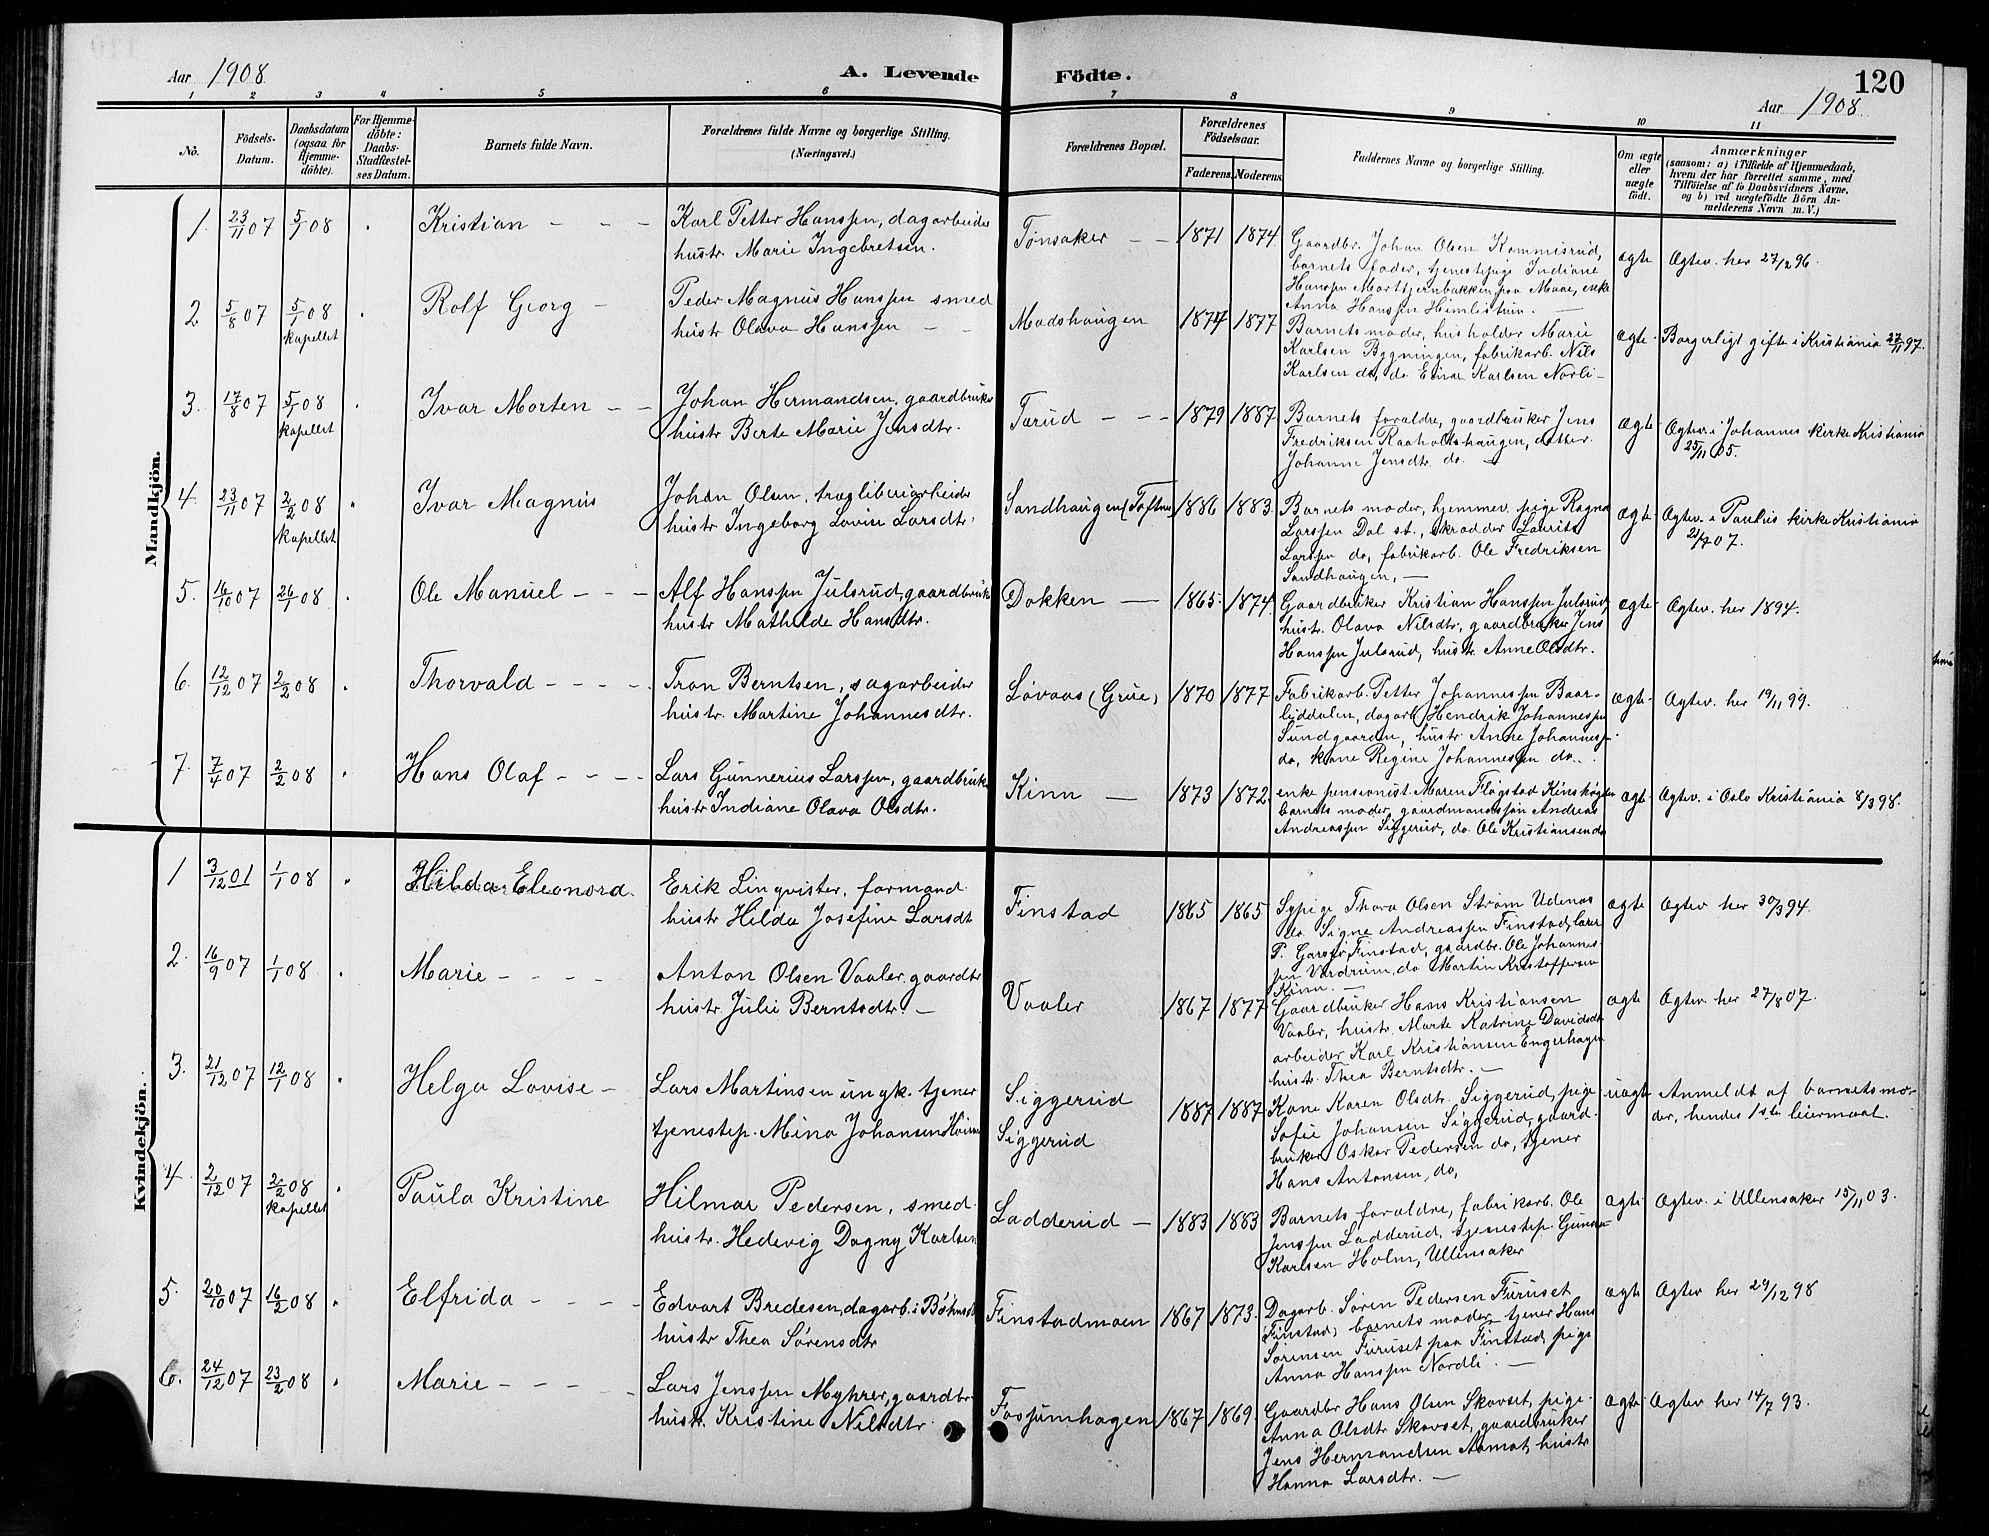 Aar 1908
A. Levende Födte.
120
Aar 1908
1 2 3 4 5 6 7 8 9 10 11
No.
Födsels-Datum.
Daabsdatum (ogsaa for Hjemme-döbte).
For Hjemme-döbte: Daabs-Stadfæstel-ses Datum.
Barnets fulde Navn.
Forældrenes fulde Navne og borgerlige Stilling. (Næringsvei.)
Forældrenes Bopæl.
Forældrenes Födselsaar.
Faderens. Moderens.
Faddernes Navne og borgerlige Stilling.
Om ægte eller uægte födt.
Anmærkninger
(saasom: a) i Tilfælde af Hjemmedaab,
hvem der har forrettet samme, med
Tilföielse af to Daabsvidners Navne.
og b) ved uægtefödte Börn An-
melderens Navn m. V.)
Mandkjön.
1. 23/11 07 5/1 08 Kristian Karl Petter Hanssen, dagarbeider
hustr. Marie Ingebretsen.
Tønsaker 1871 1874
Gaardbr. Johan Olsen Kommisrud,
barnets fader, tjenestepige Indiane
Hanssen Morttjernbakken paa Maae, enke
Anna Hanssen
ægte Ægtev. her 27/2 96.
2 5/8 07 5/1 08 kapellet Rolf Georg Peder Magnus Hanssen smed
hustr Olava Hanssen
Madshaugen 1874 1877
Barnets moder, husholder Marie
Karlsen Bygningen, fabrikarb. Nils
Karlsen do, do Einar Karlsen Norli
ægte Borgerligt gifte i Kristiania 27/11 97.
3. 17/8 07 5/1 08 kapellet Ivar Morten Johan Hermandsen, gaardbruker
hustr Berte Marie Jensdtr.
Tarud 1879 1887
Barnets forældre, gaardbruker Jens
Fredriksen Raaholtshaugen, datter
Johanne Jensdtr. do.
ægte Ægtev. i Johannes kirke Kristiania
25/11 05.
4. 23/11 07 2/2 08 kapellet Ivar Magnus Johan Olsen, træsliberiarbeider
hustr Ingeborg Lovise Larsdtr.
Sandhaugen (Toftner) 1886 1883
Barnets moder, hjemmev. pige Ragna
Larssen Dal st., skrædder Laurits
Larssen do, fabrikarb. Ole Fredriksen
Sandhaugen.
ægte Ægtev. i Paulus kirke Kristiania
07.
5. 16/10 07 26/1 08 Ole Manuel Alf Hanssen Julsrud, gaardbruk
hustr Mathilde Hansdtr.
Dokken 1865 1874
Gaardbruker Kristian Hanssen Julsrud,
hustr. Olava Nilsdtr, gaardbruker Jens
Hanssen Julsrud, hustr Anne Olsdtr.
ægte Ægtev. her 1894.
6. 12/12 07 2/2 08 Thorvald Tron Berntsen, sagarbeider
hustr. Martine Johannesdtr.
Løvaas (Grue) 1870 1877
Fabrikarb. Petter Johannessen Baar-
liddalen, dagarb. Hendrik Johannessen
Sundgaarden, hustr Anne Johannessen
do, kone Regine Johannessen do.
ægte Ægtev. her 19/11 99.
7. 7/4 07 2/2 08 Hans Olaf Lars Gunnerius Larssen, gaardbruk
hustr Indiane Olava Olsdtr.
Kinn 1873 1872
enke pensionist Maren Fløgstad
barnets moder, gaardmandssøn Andreas
Andreassen Siggerud, do. Ole Kristiansen do
ægte Ægtev. i Oslo Kristiania 8/3 98.
Kvindekjön.
1 3/12 01 1/1 08 Hilda Eleonora Erik Linqvister, formand
hustr Hilda Josefine Larsdt
Finstad 1865 1865
Sypige Thora Olsen Strøm Udenas
do. Signe Andreassen Finstad, lærer
P. Garsjø, Finstad, gaardbr. Ole Johannes-
sen Vardrum, do Martin Kristoffersen
Kinn.
ægte Ægtev her 30/3 94.
2. 16/9 07 1/1 08 Marie Anton Olsen Vaaler, gaardbr
hustr Julie Berntsdtr.
Vaaler 1867 1877
Gaardbruker Hans Kristiansen
Vaaler, hustr. Marte Katrine Davidsdt
arbeider Karl Kristiansen Engerhagen
hustr. Thea Berntsdtr.
ægte Ægtev her 27/8 07.
3. 21/12 07 12/1 08 Helga Lovise Lars Martinsen ungk. tjener
tjenestep. Mina Johansen
Siggerud
Siggerud
1887 1887
Kone Karen Olsdtr. Siggerud, pige
Sofie Johansen Siggerud, gaard-
bruker Oskar Pedersen do, tjener
Hans Antonsen do,
uægte Anmeldt af barnets mo-
der, hendes 1ste leiermaal.
4 2/12 07 2/2 08 kapellet Paula Kristine Hilmar Pedersen, smed
hustr. Hedevig Dagny Karlsen
Ladderud 1883 1883
Barnets forældre, fabrikarb. Ole
Jenssen Ladderud, tjenestep. Gunda
Karlsen Holm, Ullensaker
ægte Ægtev. i Ullensaker 15/11 03.
5. 20/10 07 16/2 08 Elfrida Edvart Bredesen, dagarb. i
hustr Thea Sørensdtr
Finstadmoen 1867 1873
Dagarb. Søren Pedersen Furuset
(Finstad) barnets moder, tjener Hans
Sørensen Furuset paa Finstad, pige
Anna Hanssen Nordli.
ægte Ægtev her 29/12 98
6. 24/12 07 23/2 08 Marie Lars Jenssen Myhrer, gaardbr
hustr. Kristine Nilsdtr.
Fossumhagen 1867 1869
Gaardbr Hans Olsen Skovset, pige
Anna Olsdtr Skovset, gaardbruker
Jens Hermandsen Aamot, hustr
Hanna Larsdtr.
ægte Ægtev her 14/7 93.